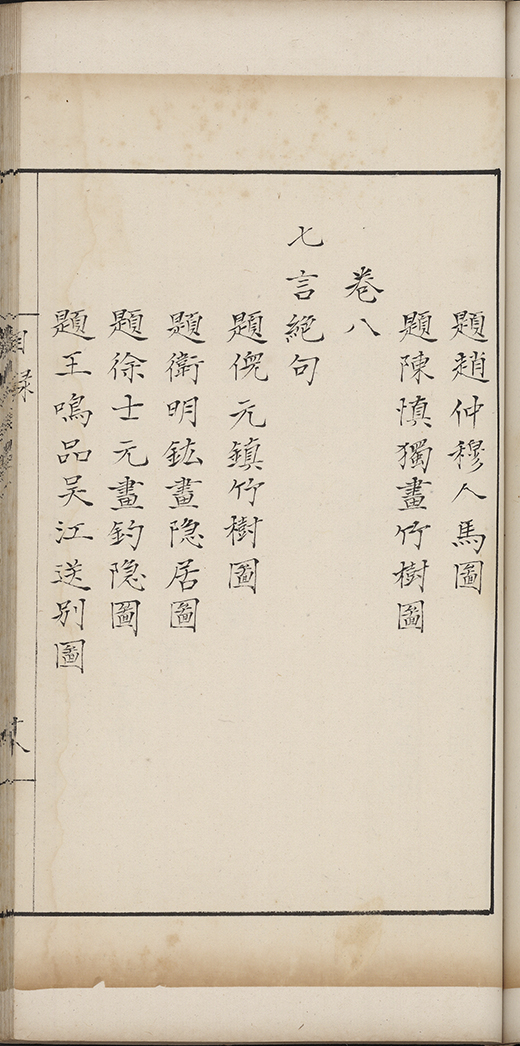 題趙仲穆人馬圖
題陳慎獨畫竹樹圖
卷八
七言絕句
題倪元鎮竹樹圖
題衛明鉉畫隐居圖
題徐士元畫釣隐圖
題王鳴品吴江送別圖
目录